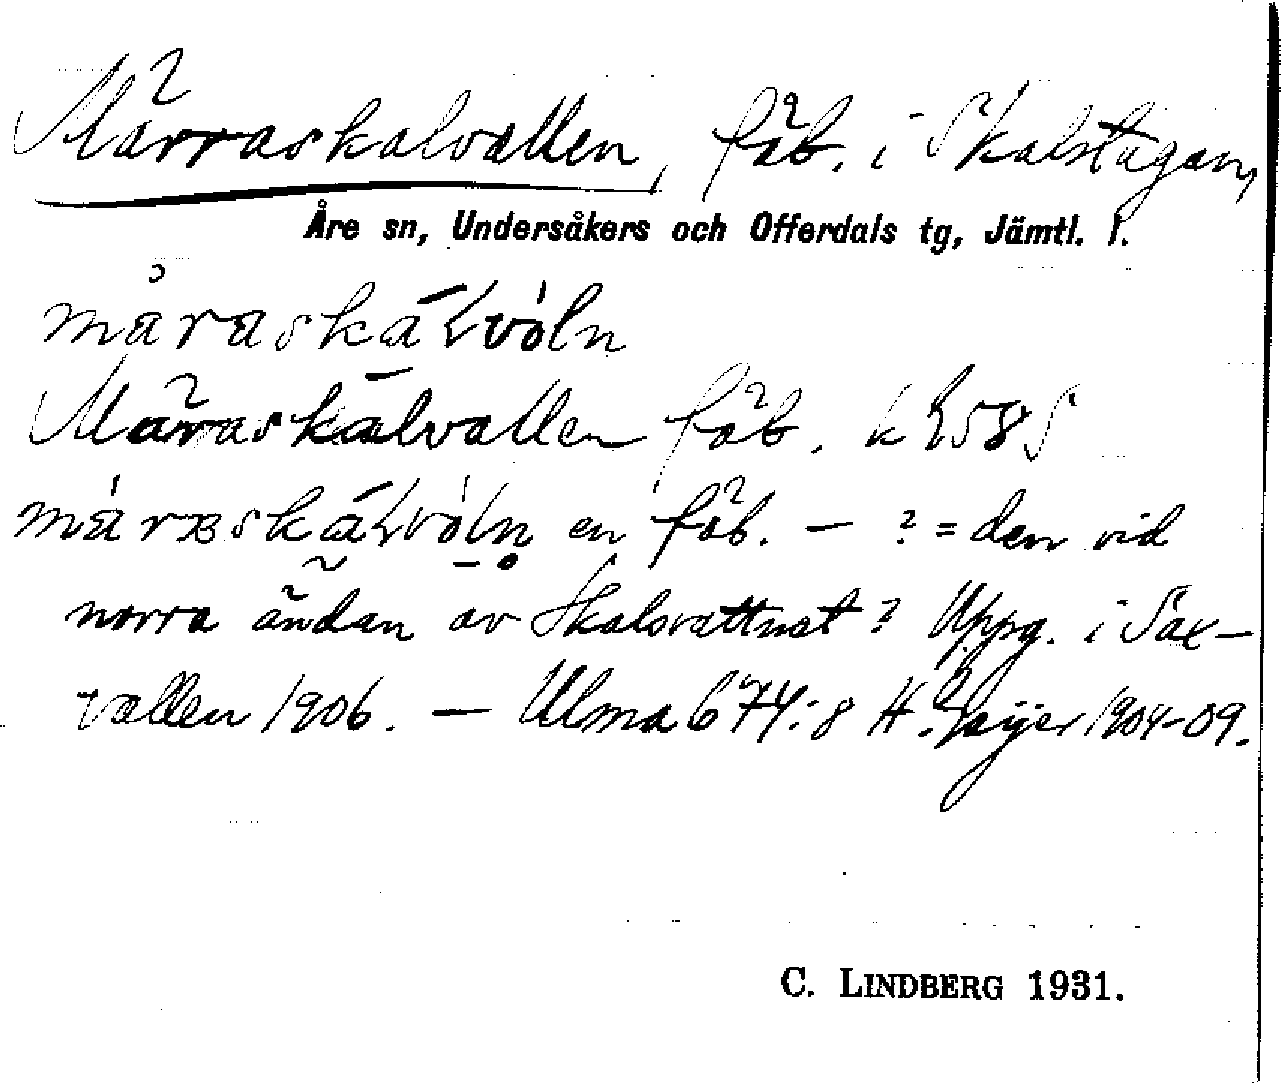 Märraskalvallen, fäb. i Skalstugan,
Åre sn, Undersåkers och Offerdals tg, Jämtl. l.
Märaskalvallen fäb.
en fäb. — ? = den vid
norra ändan av Skalsvattnet? Uppg. i Sax-
vallen 1906. — Ulma 674:8 H. Geijer 1904-09.
C. LINDBERG 1931.